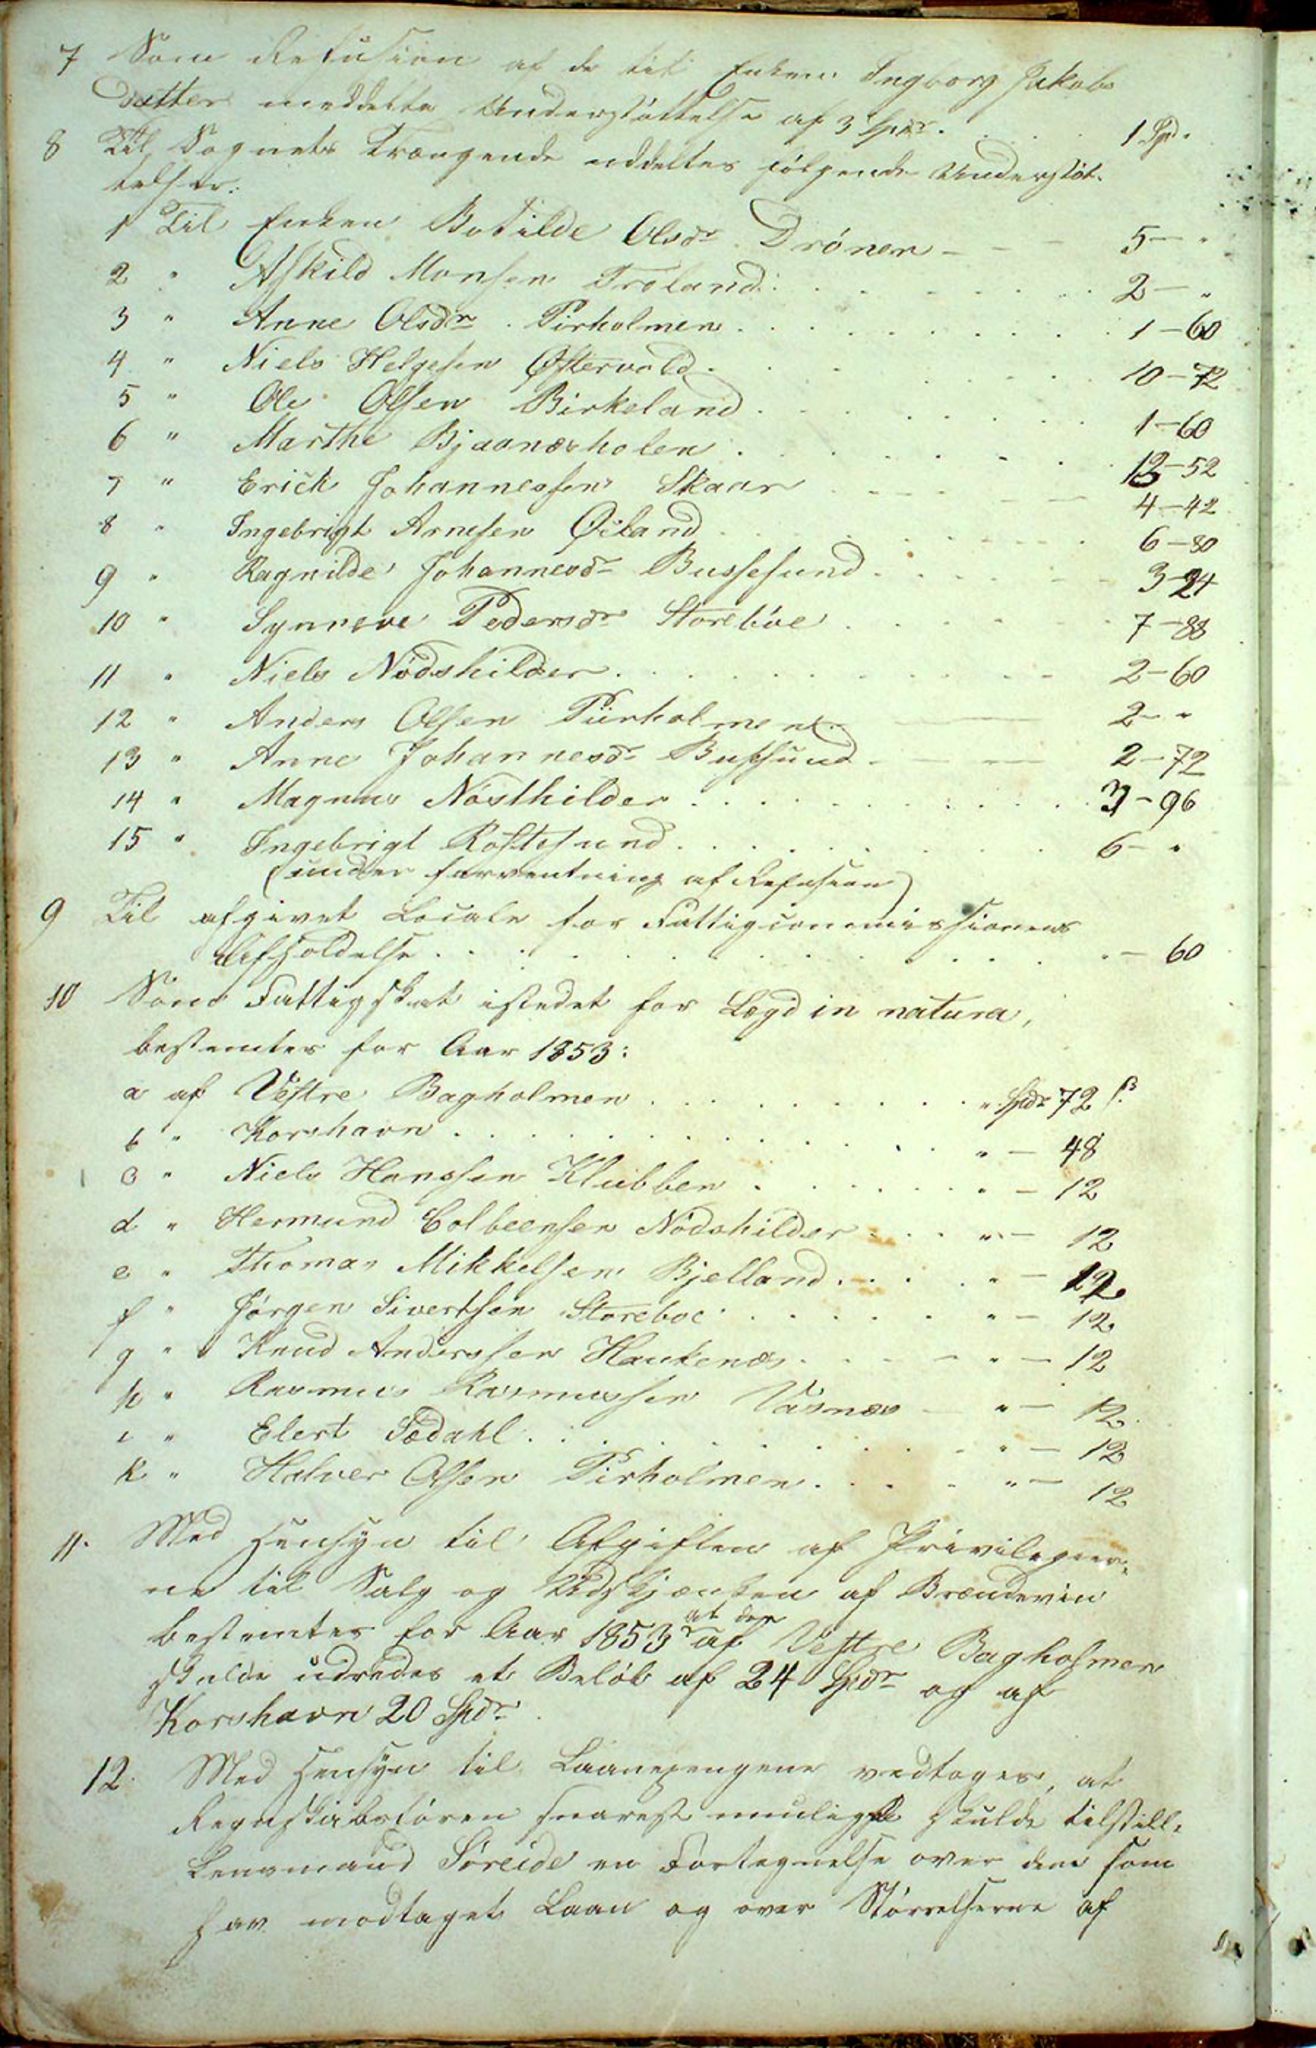 7 Som Refusion af de til Enken Ingborg Jakobs
datter meddelte Understøttelse af 3 Spdr. . . . 1 Spd "
8 Til Sognets Trængende uddeltes følgende Understøt-
telser:
1 Til Enken Botilde Olsdr Drønen - - - 5 - "
2 " Askild Monsen Troland . . . . . 2 - "
3 " Anne Olsdr. Pirholmen . . . . . 1 - 60
4 " Niels Helgesen Østervold . . . . . 10 - 72
5 " Ole Olsen Birkeland . . . . . 1 - 60
6 " Marthe Bjaanæsholen . . . . . 13 - 52
7 " Erick Johannessen Skaar . . . . 4 - 42
8 " Ingebrigt Arnesen Øeland . . . . . 6 - 80
9 " Ragnilde Johannesdr Bussesund . . . . 3 - 24
10 " Synneve Pedersdr Storebøe . . . . . 7 - 88
11 " Niels Nødshilder . . . . . 2 - 60
12 " Anders Olsen Piirholmen - - 2 - "
13 " Anne Johannesdr Bussund - - - 2 - 72
14 " Magnus Nøsthilder . . . . . 3 - 96
15 " Ingebrigt Rostesund . . . . . 6 - "
(under Forventning af Refusion)
9 Til afgivet Locale for Fattigcommissionens
Afholdelse . . . . . " - 60
10 Som Fattigskat istedet for Lægd in natura,
bestemtes for Aar 1853:
a af Vestre Bagholmen . . . . . " Spdr 72 ß
b " Korshavn . . . . . " - 48
c " Niels Hanssen Klubben . . . . . " - 12
d " Hermund Colbeensen Nødshilder . . . " - 12
e " Thomas Mikkelsen Bjelland . . . . " - 12
f " Jørgen Sivertsen Storeboe . . . . . " - 12
g " Knud Anderssen Haukenæs . . - - " - 12
h " Rasmus Rasmussen Vasnæs - " - 12
i " Elert Sædahl . . . . . " - 12
k " Halver Olsen Pirholmen . . . . " - 12
11. Med Hensyn til Afgiften af Privilegier-
ne til Salg og Udskjænken af Brændeviin
bestemtes for Aar 1853 at der af Vestre Bagholmen
skulde udredes et Beløb af 24 Spdr og af
Korshavn 20 Spdr.
12. Med Hensyn til Laanepengene vedtoges, at
Regnskabsføren snarest muligst skulde tilstill-
Lensmand Søreide en Fortegnelse over dem som
har modtaget Laan og over Størrelserne af